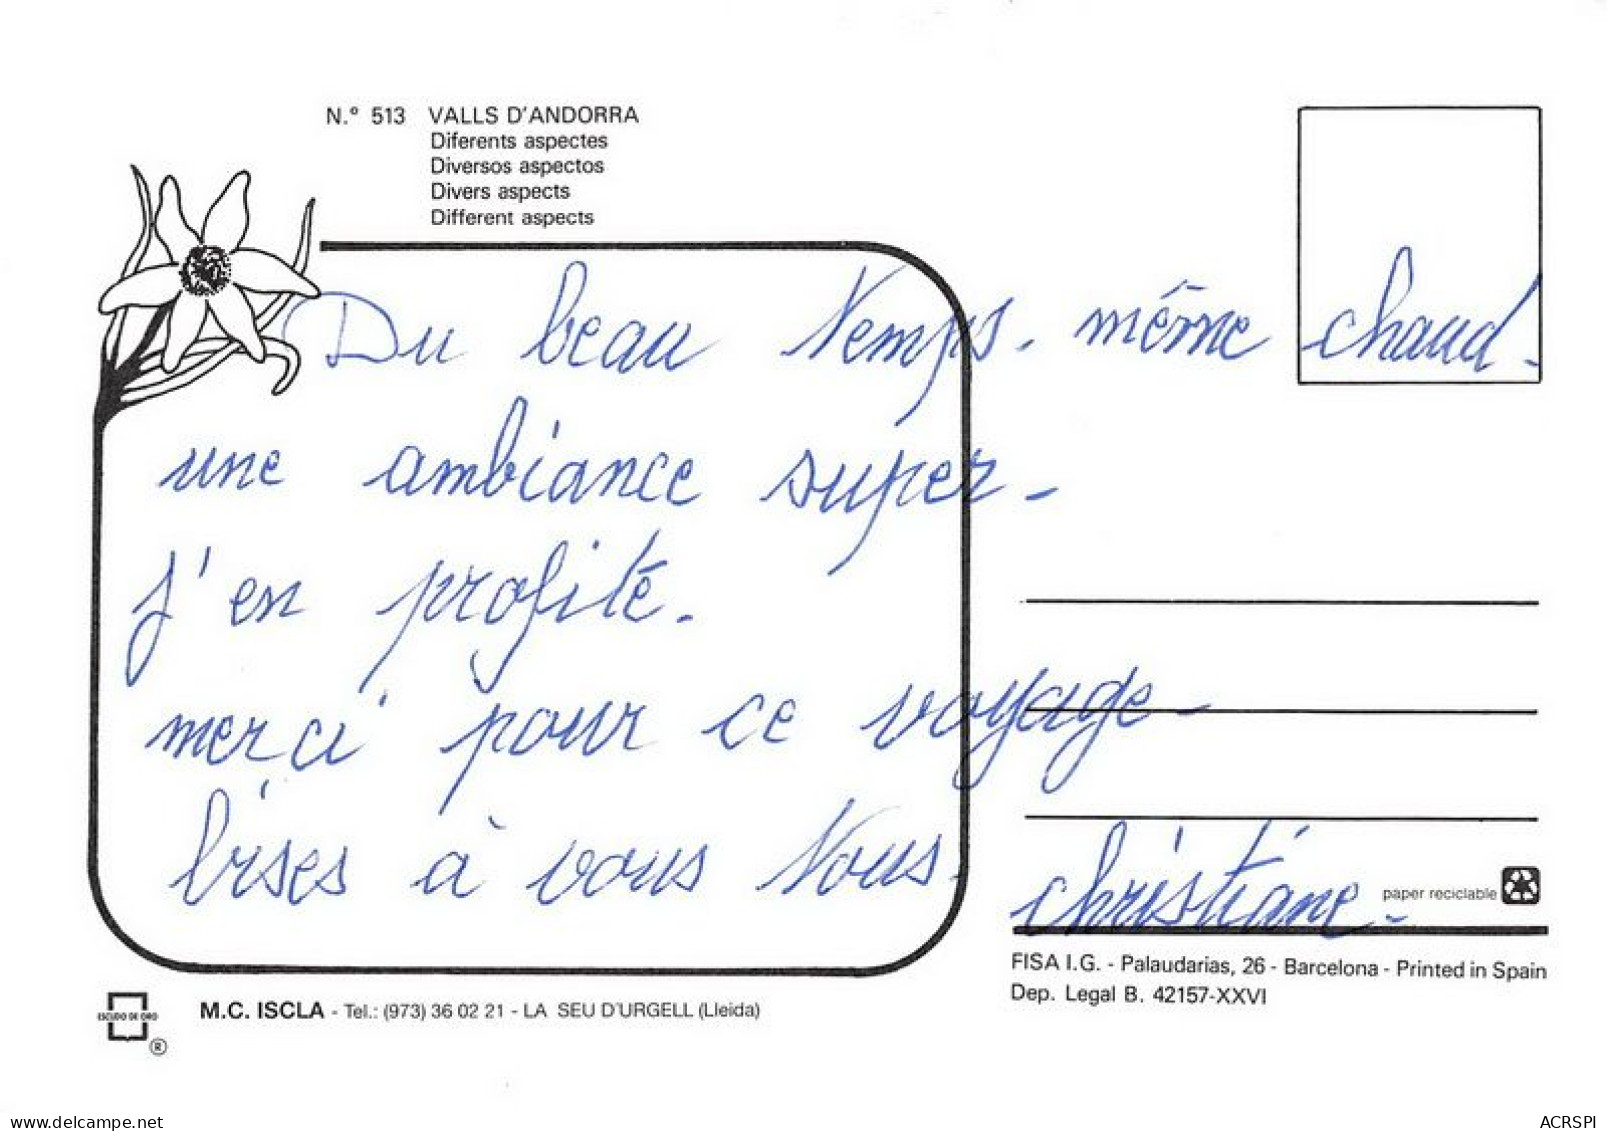 N.º 513 VALLS D'ANDORRA
Diferents aspectes
Diversos aspectos
Divers aspects
Different aspects
Du beau temps. même chaud.
une ambiance super -
j'en profité.
merci pour ce voyage -
bises à vous tous.
christiane -
paper reciclable
FISA I.G. - Palaudarias, 26 - Barcelona - Printed in Spain
Dep. Legal B. 42157-XXVI
ESCUDO DE ORO
®
M.C. ISCLA - Tel.: (973) 36 02 21 - LA SEU D'URGELL (Lleida)
www.delcampe.net
ACRSPI